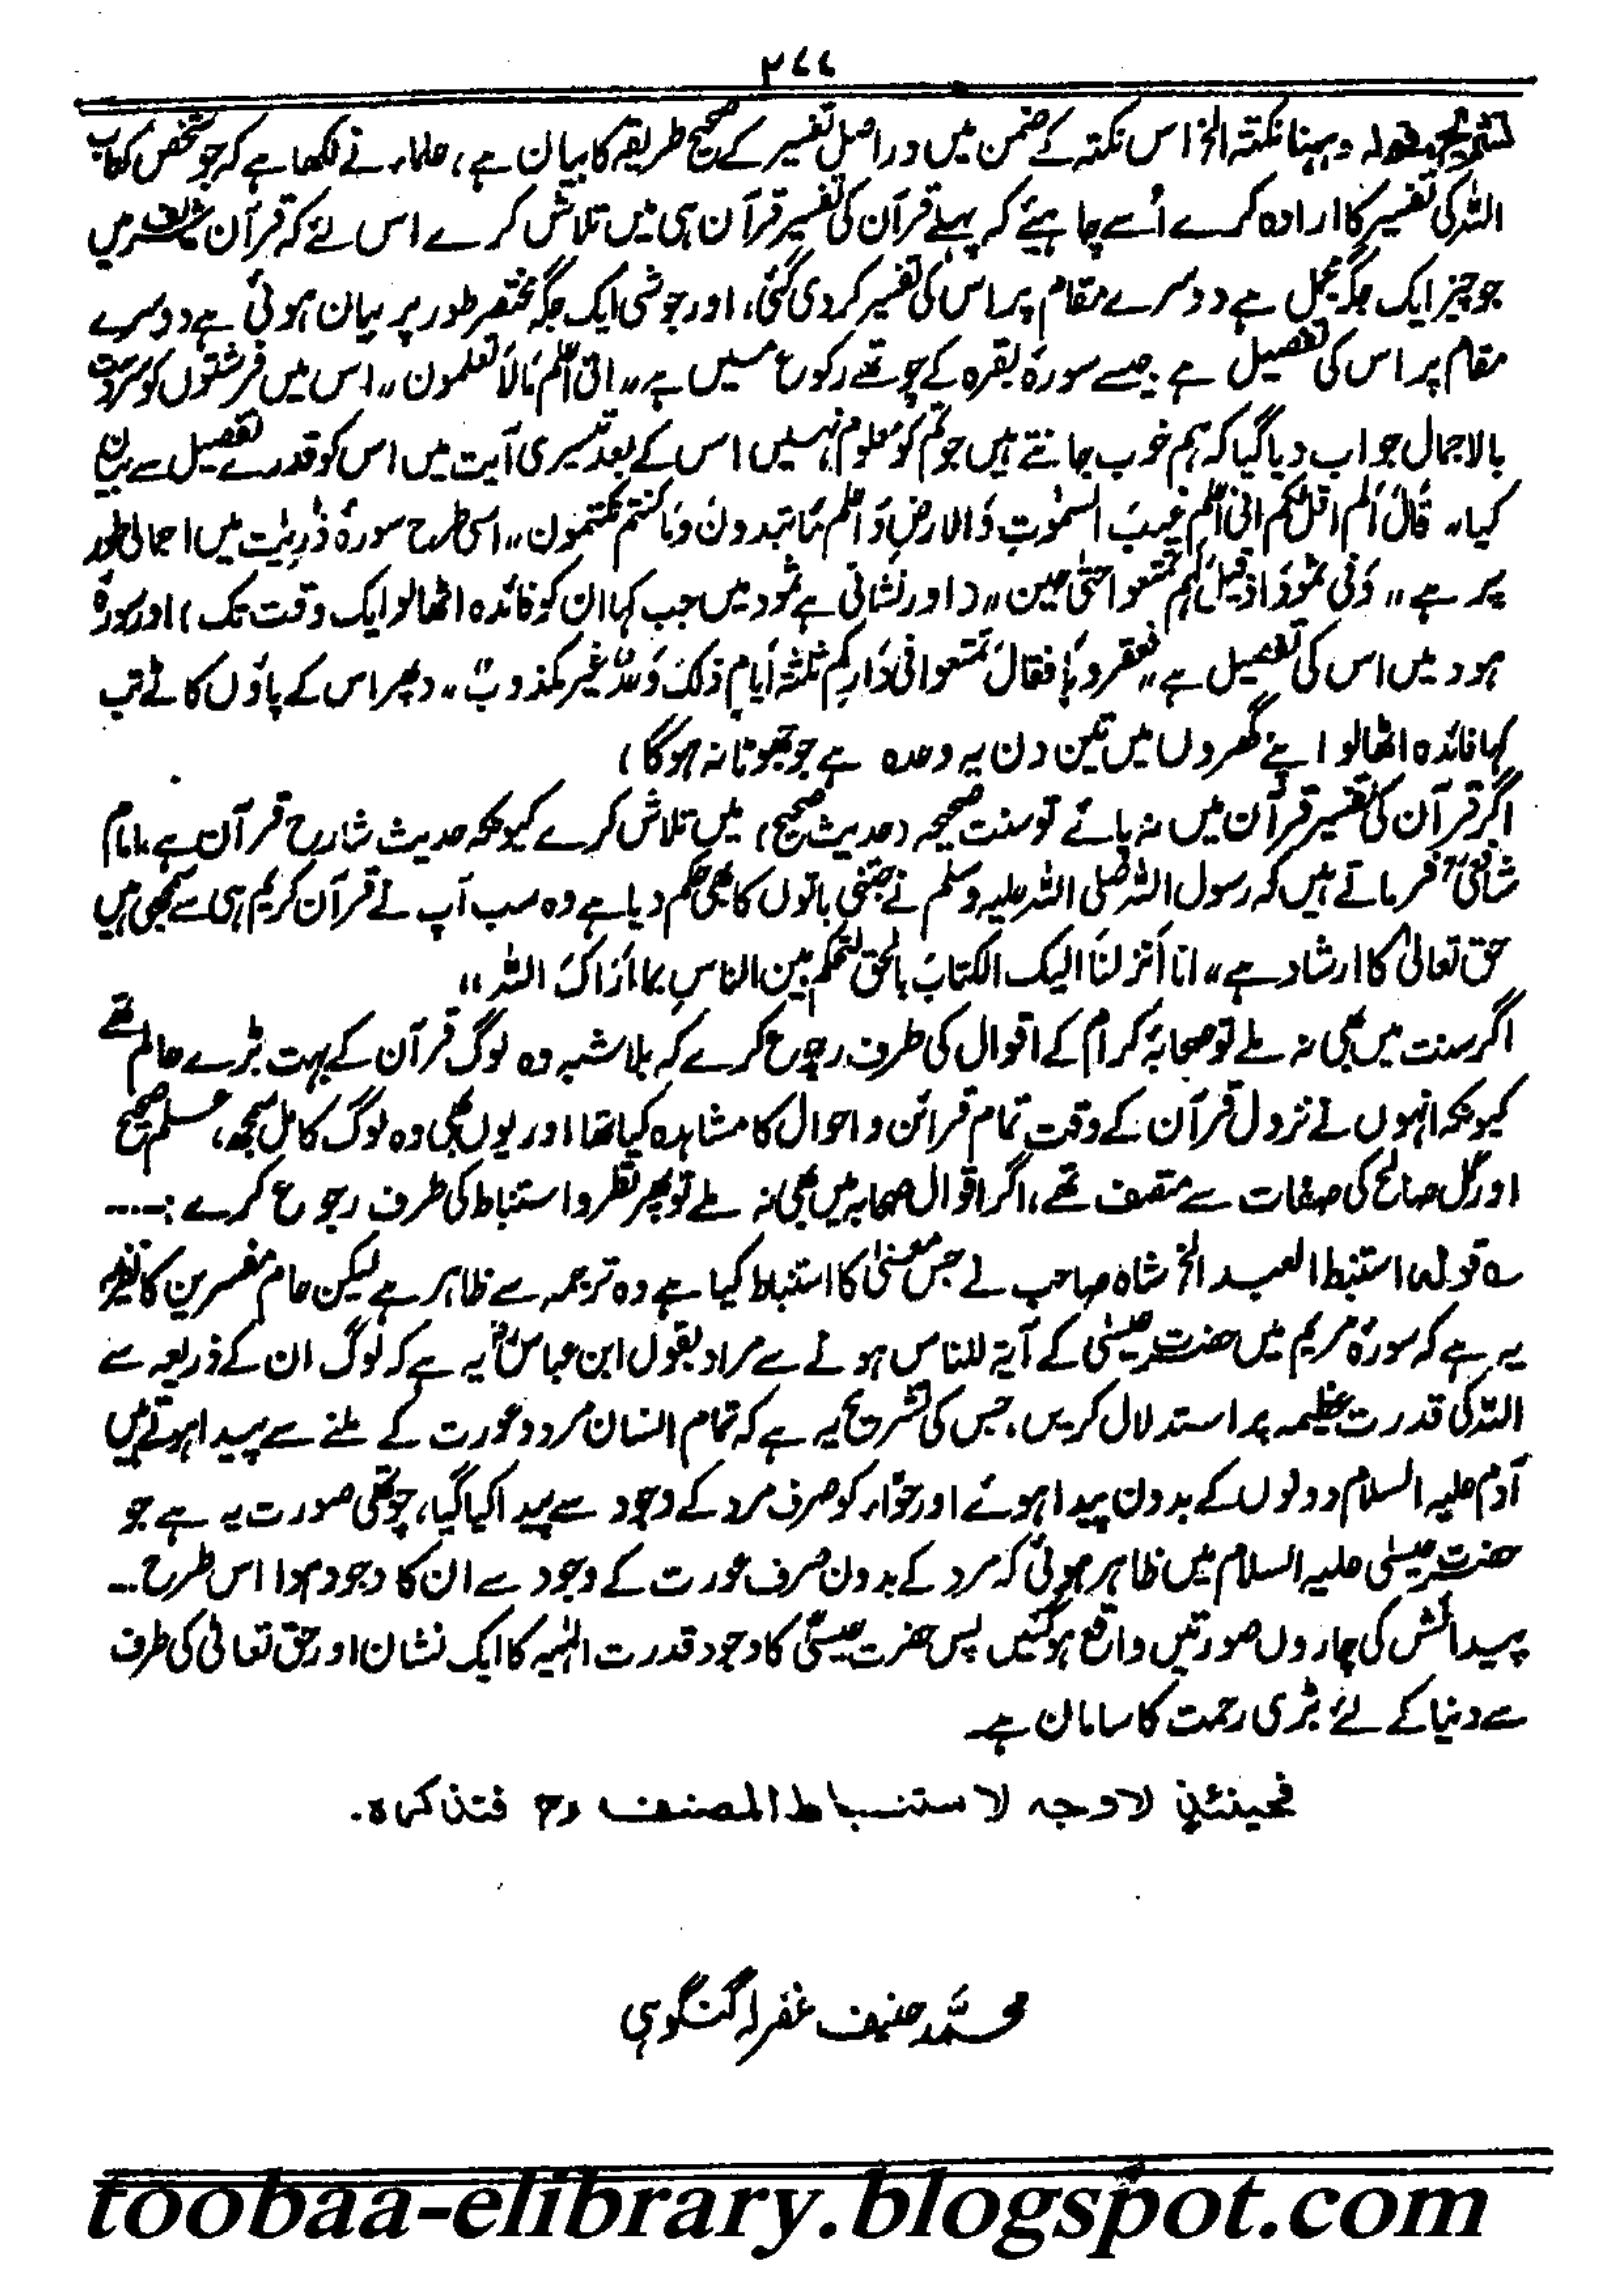 ۲۷۷
تشریح قولہ وہہنا نکتۃ الخ اس نکتہ کے ضمن میں دراصل تفسیر کے صحیح طریقہ کا بیان ہے، علماء نے لکھا ہے کہ جو شخص کتاب
اللہ کی تفسیر کا ارادہ کرے اُسے چاہیئے کہ پہلے قرآن کی تفسیر قرآن ہی میں تلاش کرے اس لئے کہ قرآن شریف میں
جو چیز ایک جگہ مجمل ہے دوسرے مقام پر اس کی تفسیر کر دی گئی، اور جو شی ایک جگہ مختصر طور پر بیان ہوئی ہے دوسرے
مقام پر اس کی تفصیل ہے جیسے سورۂ بقرہ کے چوتھے رکوع میں ہے ,, انی اعلم مَالَا تعلمون ,, اس میں فرشتوں کو سردست
بالاجمال جواب دیا گیا کہ ہم خوب جانتے ہیں جو تم کو معلوم نہیں اس کے بعد تیسری آیت میں اس کو قدرے تفصیل سے بیان
کیا ,, قَالَ اَلم اقل لکم انی اعلم غیبَ السمٰوٰتِ وَالارضِ وَاعلم مَا تبدونَ وَمَا کنتم تکتمون ,, اسی طرح سورۂ ذٰریٰت میں اجمالی طور
پر ہے ,, وَفی ثمودَ اذ قیلَ لہم تمتعوا حتیٰ حین ,, (اور نشانی ہے ثمود میں جب کہا ان کو فائدہ اٹھالو ایک وقت تک) اور سورۂ
ہود میں اس کی تفصیل ہے ,, فعقروہَا فقالَ تمتعوا فی دَارِکم ثلٰثۃَ اَیام ذٰلکَ وَعدٌ غیر مکذوبٌ ,, (پھر اس کے پاؤں کاٹے تب
کہا فائدہ اٹھالو اپنے گھروں میں تین دن یہ وعدہ ہے جو جھوٹا نہ ہوگا)
اگر قرآن کی تفسیر قرآن میں نہ پائے تو سنت صحیحہ (حدیث صحیح) میں تلاش کرے کیونکہ حدیث شارح قرآن ہے، امام
شافعیؒ فرماتے ہیں کہ رسول اللہ صلی اللہ علیہ وسلم نے جتنی باتوں کا بھی حکم دیا ہے وہ سب آپ نے قرآن کریم ہی سے سمجھی ہیں
حق تعالیٰ کا ارشاد ہے ,, انا اَنزلنَا الیک الکتابَ بالحق لتحکم بین الناسِ بما اَرَاکَ اللہ ,,
اگر سنت میں بھی نہ ملے تو صحابۂ کرام کے اقوال کی طرف رجوع کرے کہ بلا شبہ وہ لوگ قرآن کے بہت بڑے عالم تھے
کیونکہ انہوں نے نزول قرآن کے وقت تمام قرائن و احوال کا مشاہدہ کیا تھا اور یوں بھی وہ لوگ کامل سمجھ، علم صحیح
اور عمل صالح کی صفات سے متصف تھے، اگر اقوال صحابہ میں بھی نہ ملے تو پھر نظر و استنباط کی طرف رجوع کرے :-....
ے قولہ استنبط العبد الخ شاہ صاحب نے جس معنیٰ کا استنباط کیا ہے وہ ترجمہ سے ظاہر ہے لیکن عام مفسرین کا نظریہ
یہ ہے کہ سورۂ مریم میں حضرت عیسیٰ کے آیۃ للناس ہونے سے مراد بقول ابن عباسؓ یہ ہے کہ لوگ ان کے ذریعہ سے
اللہ کی قدرت عظیمہ پر استدلال کریں، جس کی تشریح یہ ہے کہ تمام انسان مرد و عورت کے ملنے سے پیدا ہوتے ہیں
آدم علیہ السلام دونوں کے بدون پیدا ہوئے اور حوّاء کو صرف مرد کے وجود سے پیدا کیا گیا، چوتھی صورت یہ ہے جو
حضرت عیسیٰ علیہ السلام میں ظاہر ہوئی کہ مرد کے بدون صرف عورت کے وجود سے ان کا وجود ہوا اس طرح...
پیدائش کی چاروں صورتیں واقع ہو گئیں پس حضرت عیسیٰؑ کا وجود قدرت الٰہیہ کا ایک نشان اور حق تعالیٰ کی طرف
سے دنیا کے لئے بڑی رحمت کا سامان ہے۔
فحینئذٍ لا وجہ لاستنباط المصنف رح فتذکرہ۔
محمّد حنیف غفرلہ گنگوہی
toobaa-elibrary.blogspot.com